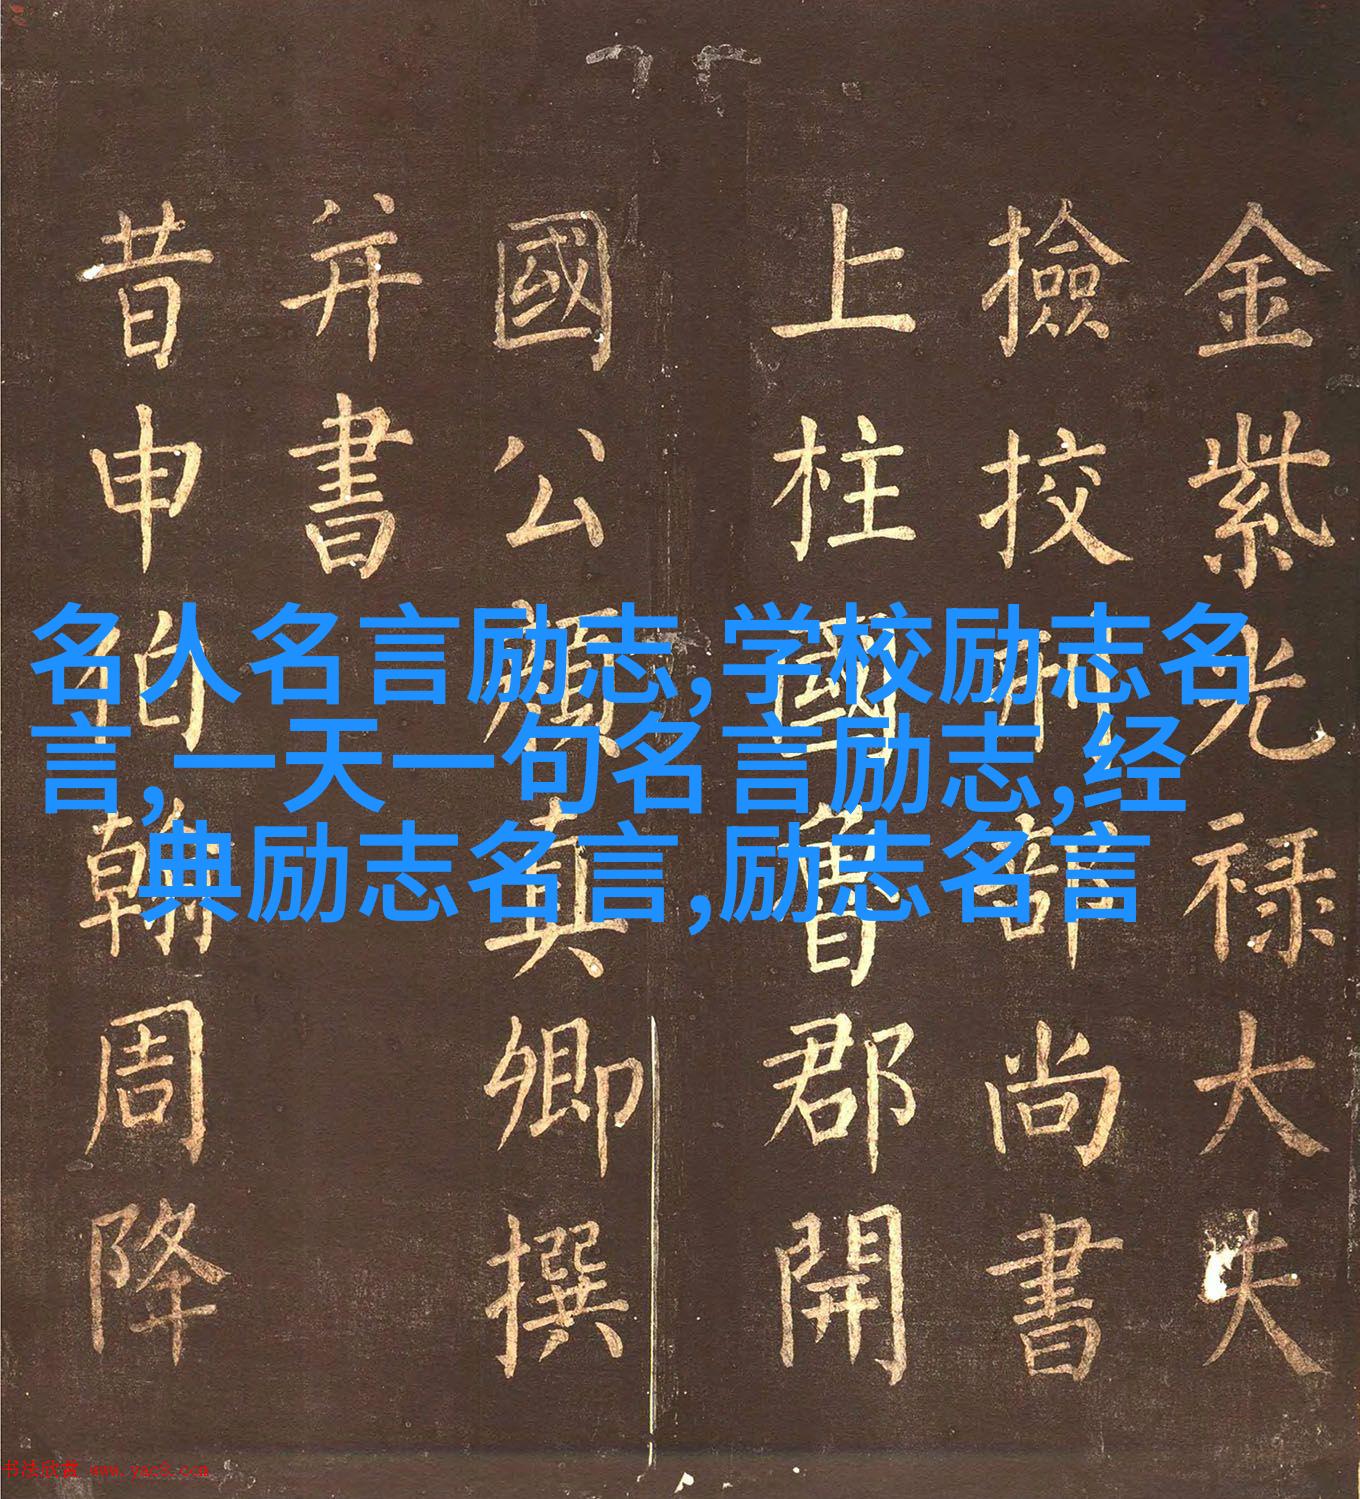 金紫光禄大夫
撿挍刑部尚書
上柱國魯郡開
國公顔真卿撰
并書
昔申伯翰周降
名人名言励志,学校励志名
言,一天一句名言励志,经
典励志名言,励志名言
书法欣赏 www.yac8.com